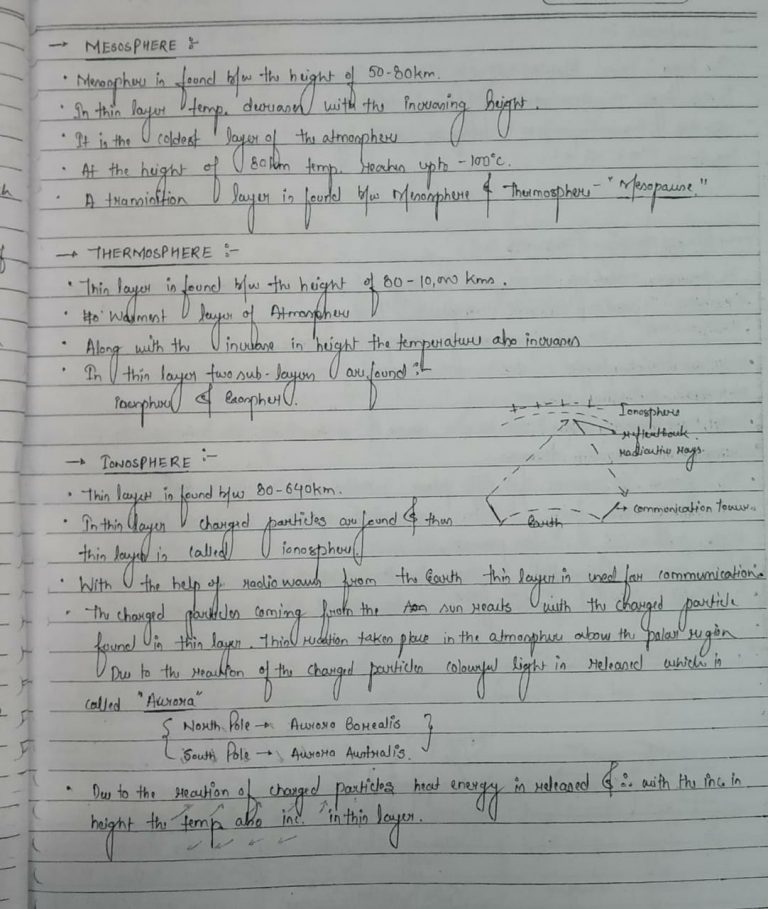 → MESOSPHERE :-
• Mesosphere is found b/w the height of 50-80km.
• In this layer temp. decreases with the increasing height.
• It is the coldest layer of the atmosphere
• At the height of 80km temp. reaches upto -100°C.
• A transition layer is found b/w Mesosphere & Thermosphere - "Mesopause."
→ THERMOSPHERE :-
• This layer is found b/w the height of 80-10,000 kms.
• Warmest layer of Atmosphere
• Along with the increase in height the temperature also increases
• In this layer two sub-layers are found :-
Ionosphere & Exosphere.
Ionosphere
reflect back
radioactive rays.
communication tower
Earth
→ IONOSPHERE :-
• This layer is found b/w 80-640km.
• In this layer charged particles are found & thus
this layer is called ionosphere.
• With the help of radio waves from the Earth this layer is used for communication.
• The charged particles coming from the sun reacts with the charged particle
found in this layer. This reaction takes place in the atmosphere above the polar region
Due to the reaction of the charged particles colourful light is released which is
called "Aurora"
{ North Pole → Aurora Borealis }
{ South Pole → Aurora Australis. }
• Due to the reaction of charged particles heat energy is released & ∴ with the inc. in
height the temp also inc. in this layer.